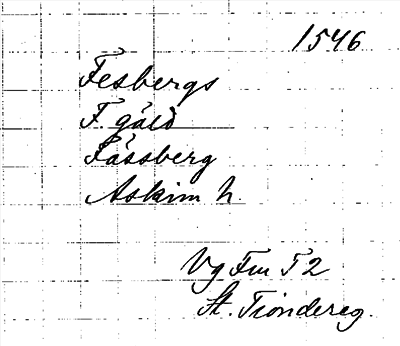 1546
Fesbergs
F. gård
Fässberg
Askim h.
Vg Fm 52
St. Tiondereg.